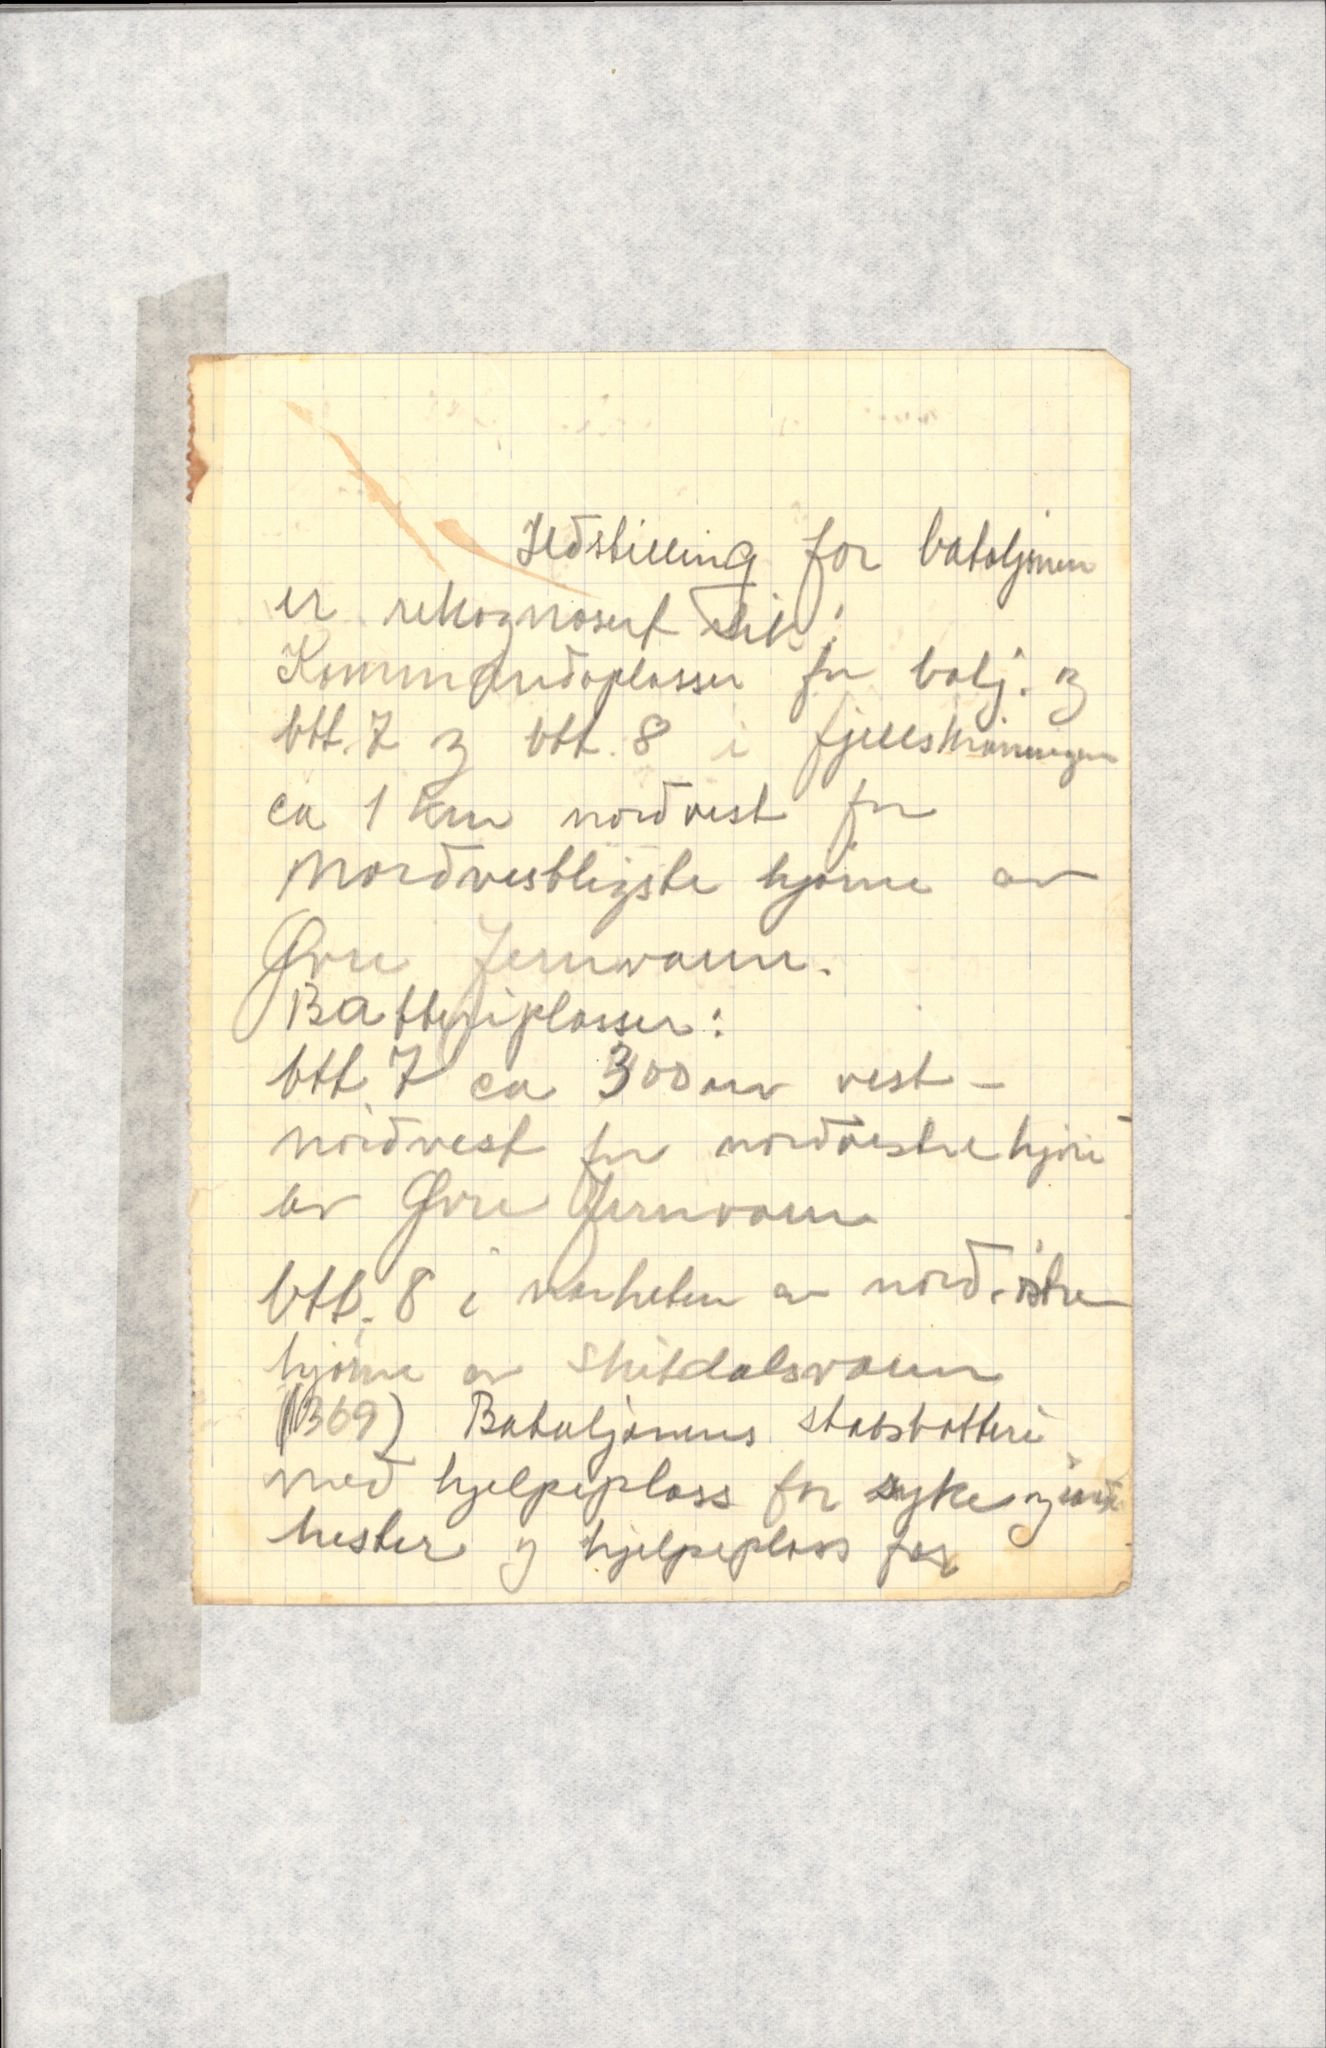 Ildstilling for bataljonen
er rekognosert slik:
Kommandoplasser for batj. og
btt. 7 og btt. 8 i fjellskråningen
ca 1 km nordvest for
nordvestligste hjørne av
Øvre Jernvann.
Batteriplasser:
btt. 7 ca 300 m vest-
nordvest for nordvestre hjørne
av Øvre Jernvann
btt. 8 i nærheten av nord-østre
hjørne av Skitdalsvann
(369) Bataljonens stabsbatteri
med hjelpeplass for syke og
hester og hjelpeplass for